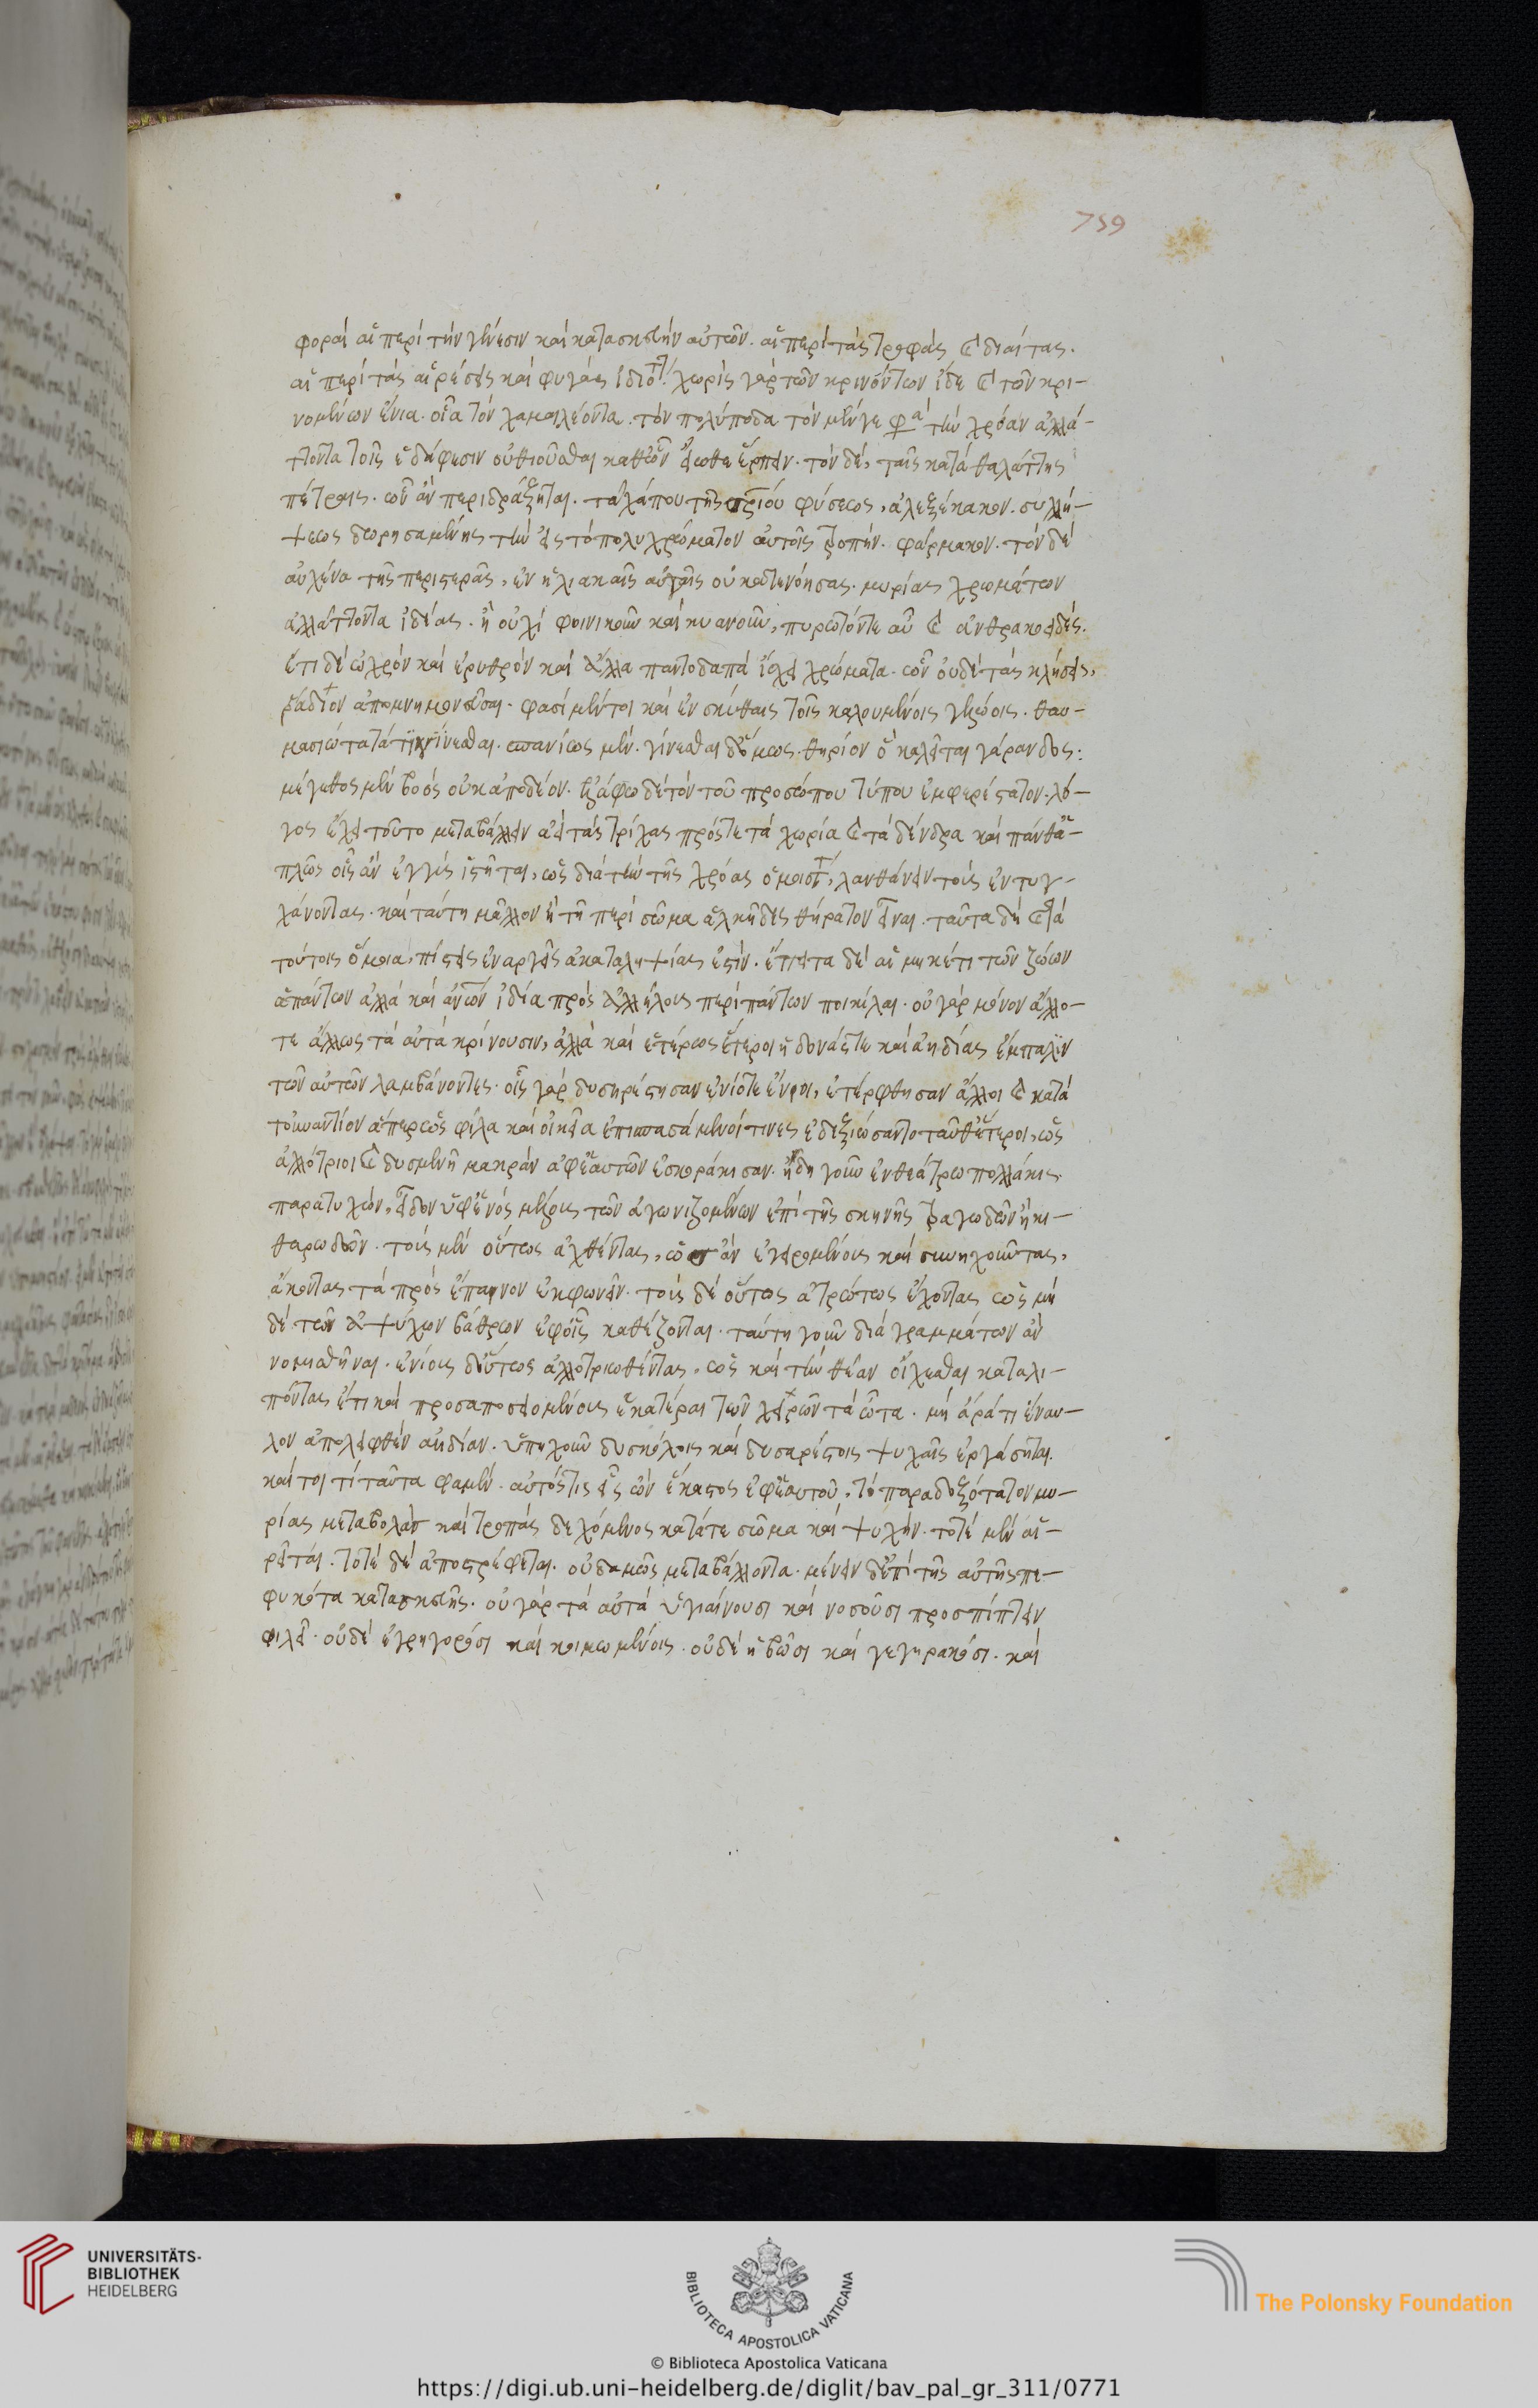 759
φοραὶ αἱ περὶ τὴν γένεσιν καὶ κατασκευὴν αὐτῶν. αἱ περὶ τὰς τροφὰς καὶ διαίτας.
αἱ περὶ τὰς αἱρέσεις καὶ φυγὰς ἰδιότ. χωρὶς γὰρ τῶν κρινόντων ἴδε καὶ τῶν κρι-
νομένων ἔνια. οἷα τὸν χαμαιλέοντα. τὸν πολύποδα τὸν μέν γε φα τὴν χρόαν ἀλλά-
ττοντα τοῖς ἐδάφεσιν οὑθιοῦσθαι καθ' ὧν εἴωθε ἕρπειν. τὸν δὲ, ταῖς κατὰ θαλάττης
πέτραις. ὧν ἂν περιδράξηται. τάχά που τῆς φύσεως, ἀλεξίκακον. συλλή-
ψεως δωρησαμένης τὴν εἰς τὸ πολυχρώματον αὐτοῖς τροπήν. φάρμακον. τὸν δὲ
αὐχένα τῆς περιστερᾶς, ἐν ἡλιακαῖς αὐγαῖς οὐ κατενόησας. μυρίας χρωμάτων
ἀλλάττοντα ἰδέας. ἢ οὐχὶ φοινικοῦν καὶ κυανοῦν, πυρωτόν τε αὖ καὶ ἀνθρακοειδές.
ἔτι δὲ ὠχρὸν καὶ ἐρυθρὸν καὶ ἄλλα παντοδαπὰ ἴσχει χρώματα. ὧν οὐδὲ τὰς κλήσεις,
ῥᾴδιον ἀπομνημονεῦσαι. φασὶ μέντοι καὶ ἐν σκύθαις τοῖς καλουμένοις γελώοις. θαυ-
μασιώτατάτι γίνεσθαι. σπανίως μὲν. γίνεσθαι δ' ὅμως. θηρίον ὃ καλεῖται τάρανδος:
μέγεθος μὲν βοὸς οὐκ ἀποδέον. ἐλάφω δὲ τὸν τοῦ προσώπου τύπον ἐμφερέστατον. λό-
γος ἔχει τοῦτο μεταβάλλειν ἀεὶ τὰς τρίχας πρός τε τὰ χωρία καὶ τὰ δένδρα καὶ πάνθ' ἁ-
πλῶς οἷς ἂν ἐγγὺς ἵστηται, ὡς διὰ τὴν τῆς χρόας ὁμοιότ, λανθάνειν τοὺς ἐντυγ-
χάνοντας. καὶ ταύτη μᾶλλον ἢ τῆ περὶ σῶμα ἀλκῆ δυσθήρατον εἶναι. ταῦτα δὴ καὶ τὰ
τούτοις ὅμοια, πίστεις ἐναργεῖς ἀκαταληψίας ἐστίν. ἔπειτα δὲ αἱ μηκέτι τῶν ζώων
ἁπάντων ἀλλὰ καὶ ἀνων ἰδία πρὸς ἀλλήλους περὶ πάντων ποικίλαι. οὐ γὰρ μόνον ἄλλο-
τε ἄλλως τὰ αὐτὰ κρίνουσιν, ἀλλὰ καὶ ἑτέρως ἕτεροι ἡδονάς τε καὶ ἀηδίας ἔμπαλιν
τῶν αὐτῶν λαμβάνοντες. οἷς γὰρ δυσηρέστησαν ἐνίοτε ἔνιοι, ἐτέρφθησαν ἄλλοι καὶ κατὰ
τοὐναντίον ἅπερ ὡς φίλα καὶ οἰκεῖα ἐπισπασάμενοί τινες ἐδεξιώσαντο ταῦθ' ἕτεροι, ὡς
ἀλλότρια καὶ δυσμενῆ μακρὰν ἀφ' ἑαυτῶν ἐσκοράκισαν. ἤδη γοῦν ἐν θεάτρω πολλάκις
παρατυχών, εἶδον ὑφ' ἑνὸς μέλους τῶν ἀγωνιζομένων ἐπὶ τῆς σκηνῆς τραγωδῶν ἢ κι-
θαρωδῶν. τοὺς μὲν οὕτως ἀχθέντας, ὡς ἂν ἐγειρομένους καὶ συνηχοῦντας,
ἄκοντας τὰ πρὸς ἔπαινον ἐκφωνεῖν. τοὺς δὲ οὕτως ἀτρώτως ἔχοντας ὡς μη
δὲ τῶν ἀψύχων βάθρων ἐφ' οἷς καθέζονται. ταύτη γοῦν διὰ γραμμάτων ἂν
νομισθῆναι. ἐνίους δ' οὕτως ἀλλοτριωθέντας, ὡς καὶ τὴν θέαν οἴχεσθαι καταλι-
πόντας ἔτι καὶ προσαποσειομένους ἑκατέραι τῶν χειρῶν τὰ ὦτα. μὴ ἄρά τι ἔναυ-
λον ἀπολειφθὲν ἀηδίαν. ὑπηχοῦν δυσκόλοις καὶ δυσαρέστοις ψυχαῖς ἐργάσηται.
καίτοι τί ταῦτα φαμέν. αὐτός τις εἷς ὢν ἕκαστος ἐφ' ἑαυτοῦ, τὸ παραδοξότατον μυ-
ρίας μεταβολὰς καὶ τροπὰς δεχόμενος κατά τε σῶμα καὶ ψυχήν. τοτὲ μὲν αἱ-
ρεῖται. τοτὲ δὲ ἀποστρέφεται. οὐδαμῶς μεταβάλλοντα. μένειν δ' ἐπὶ τῆς αὐτῆς πε-
φυκότα κατασκευῆς. οὐ γὰρ τὰ αὐτὰ ὑγιαίνουσι καὶ νοσοῦσι προσπίπτειν
φιλεῖ. οὐδὲ ἐγρηγορόσι καὶ κοιμωμένοις. οὐδὲ ἡβῶσι καὶ γεγηρακόσι. καὶ
UNIVERSITÄTS-
BIBLIOTHEK
HEIDELBERG
BIBLIOTECA APOSTOLICA VATICANA
The Polonsky Foundation
© Biblioteca Apostolica Vaticana
https://digi.ub.uni-heidelberg.de/diglit/bav_pal_gr_311/0771